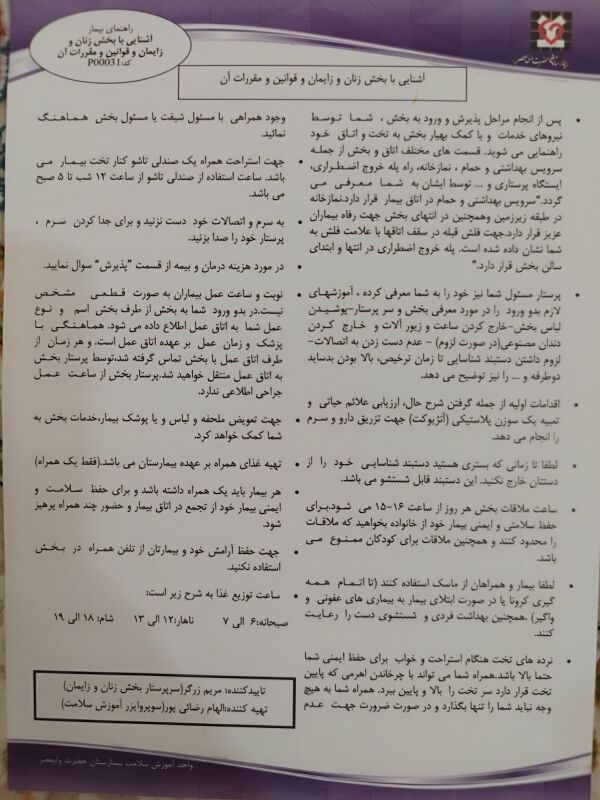 راهنمای بیمار
آشنایی با بخش زنان و
زایمان و قوانین و مقررات آن
کد:P00031
آشنایی با بخش زنان و زایمان و قوانین و مقررات آن
• پس از انجام مراحل پذیرش و ورود به بخش ، شما توسط
نیروهای خدمات و یا کمک بهیار بخش به تخت و اتاق خود
راهنمایی می شوید. قسمت های مختلف اتاق و بخش از جمله
سرویس بهداشتی و حمام ، نمازخانه، راه پله خروج اضطراری،
ایستگاه پرستاری و ... توسط ایشان به شما معرفی می
گردد.“سرویس بهداشتی و حمام در اتاق بیمار قرار دارد.نمازخانه
در طبقه زیرزمین وهمچنین در انتهای بخش جهت رفاه بیماران
عزیز قرار دارد.جهت فلش قبله در سقف اتاقها با علامت فلش به
شما نشان داده شده است. پله خروج اضطراری در انتها و ابتدای
سالن بخش قرار دارد.“
• پرستار مسئول شما نیز خود را به شما معرفی کرده ، آموزشهای
لازم بدو ورود را در مورد معرفی بخش و سر پرستار-پوشیدن
لباس بخش-خارج کردن ساعت و زیور آلات و خارج کردن
دندان مصنوعی(در صورت لزوم) - عدم دست زدن به اتصالات-
لزوم داشتن دستبند شناسایی تا زمان ترخیص، بالا بودن بدساید
دوطرفه و ... را نیز توضیح می دهد.
• اقدامات اولیه از جمله گرفتن شرح حال، ارزیابی علائم حیاتی و
تعبیه یک سوزن پلاستیکی (آنژیوکت) جهت تزریق دارو و سرم
را انجام می دهد.
• لطفا تا زمانی که بستری هستید دستبند شناسایی خود را از
دستتان خارج نکنید. این دستبند قابل شستشو می باشد.
• ساعت ملاقات بخش هر روز از ساعت ۱۶-۱۵ می شود.برای
حفظ سلامتی و ایمنی بیمار خود از خانواده بخواهید که ملاقات
را محدود کنند و همچنین ملاقات برای کودکان ممنوع می
باشد.
• لطفا بیمار و همراهان از ماسک استفاده کنند (تا اتمام همه
گیری کرونا یا در صورت ابتلای بیمار به بیماری های عفونی و
واگیر) .همچنین بهداشت فردی و شستشوی دست را رعایت
کنند.
• نرده های تخت هنگام استراحت و خواب برای حفظ ایمنی شما
حتما بالا باشد.همراه شما می تواند با چرخاندن اهرمی که پایین
تخت قرار دارد سر تخت را بالا و پایین ببرد. همراه شما به هیچ
وجه نباید شما را تنها بگذارد و در صورت ضرورت جهت عدم
وجود همراهی با مسئول شیفت یا مسئول بخش هماهنگ
نمائید.
• جهت استراحت همراه یک صندلی تاشو کنار تخت بیمار می
باشد. ساعت استفاده از صندلی تاشو از ساعت ۱۲ شب تا ۵ صبح
می باشد.
• به سرم و اتصالات خود دست نزنید و برای جدا کردن سرم ،
پرستار خود را صدا بزنید.
• در مورد هزینه درمان و بیمه از قسمت “پذیرش” سوال نمایید.
• نوبت و ساعت عمل بیماران به صورت قطعی مشخص
نیست.در بدو ورود شما به بخش از طرف بخش اسم و نوع
عمل شما به اتاق عمل اطلاع داده می شود. هماهنگی با
پزشک و زمان عمل بر عهده اتاق عمل است. و هر زمان از
طرف اتاق عمل با بخش تماس گرفته شد،توسط پرستار بخش
به اتاق عمل منتقل خواهید شد.پرستار بخش از ساعت عمل
جراحی اطلاعی ندارد.
• جهت تعویض ملحفه و لباس و یا پوشک بیمار،خدمات بخش به
شما کمک خواهد کرد.
• تهیه غذای همراه بر عهده بیمارستان می باشد.(فقط یک همراه)
• هر بیمار باید یک همراه داشته باشد و برای حفظ سلامت و
ایمنی بیمار خود از تجمع در اتاق بیمار و حضور چند همراه پرهیز
شود.
• جهت حفظ آرامش خود و بیمارتان از تلفن همراه در بخش
استفاده نکنید.
• ساعت توزیع غذا به شرح زیر است:
صبحانه:۶ الی ۷ ناهار:۱۲ الی ۱۳ شام: ۱۸ الی ۱۹
تاییدکننده: مریم زرگر(سرپرستار بخش زنان و زایمان)
تهیه کننده:الهام رضائی پور(سوپروایزر آموزش سلامت)
واحد آموزش سلامت بیمارستان حضرت ولیعصر